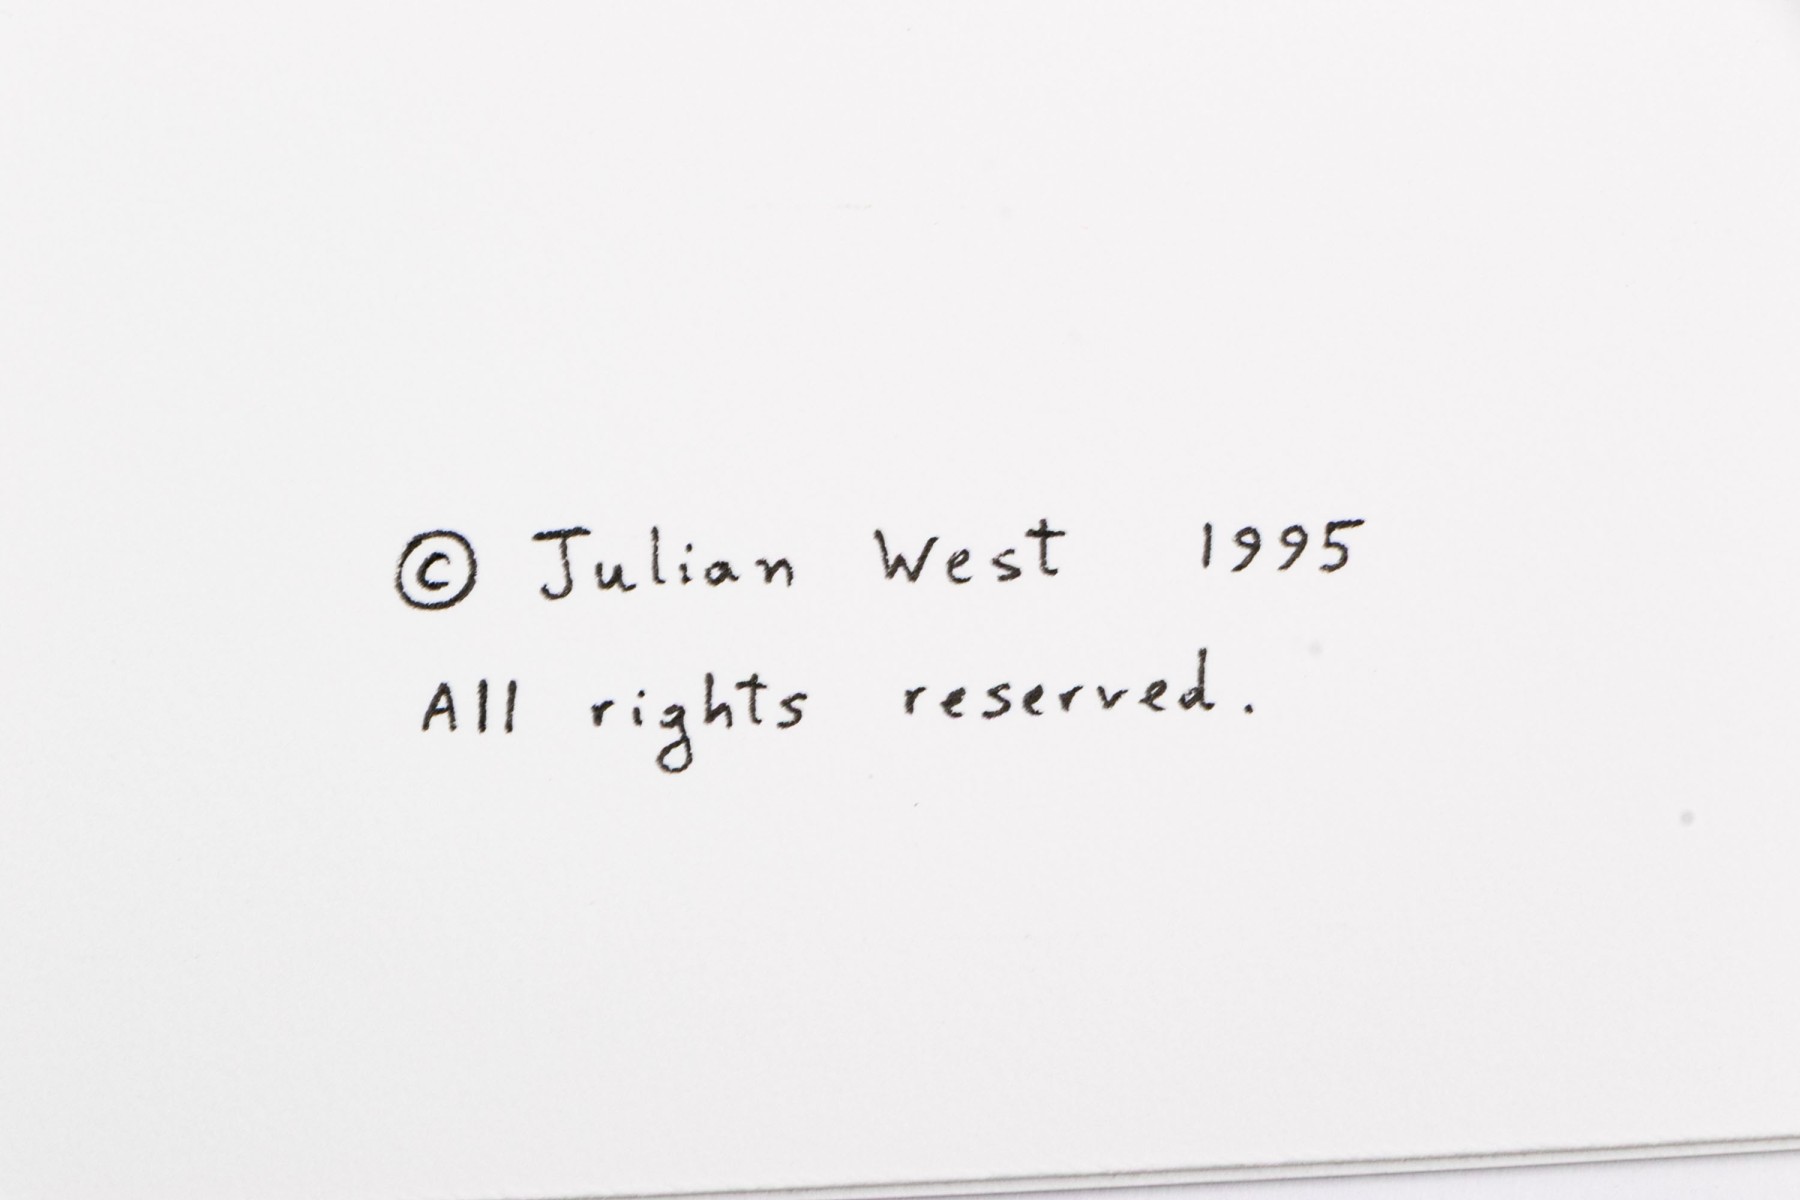 © Julian West 1995
All rights reserved.